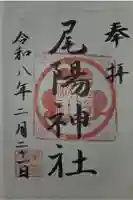 奉拝
尾陽神社
令和八年二月二十一日